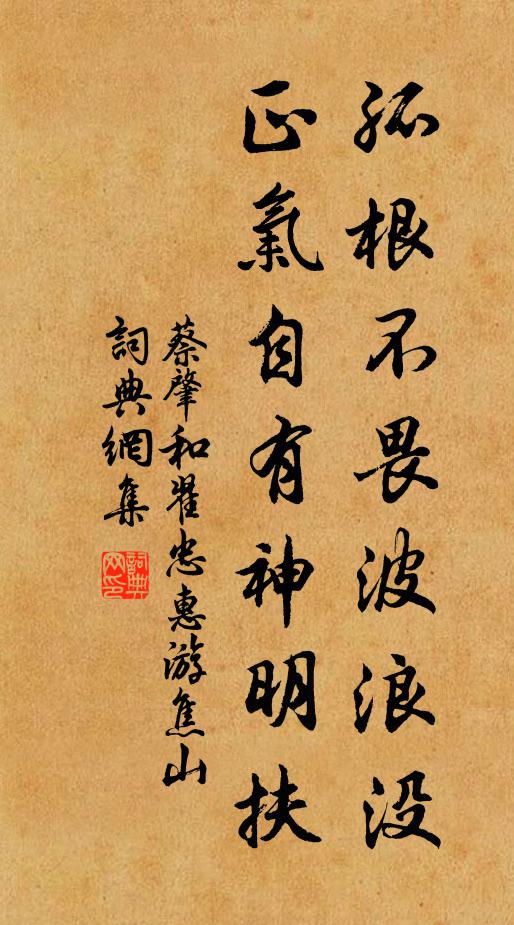 孤根不畏波浪没
正氣自有神明扶
蔡肇和翟忠惠游焦山
詞典網集
詞典网印